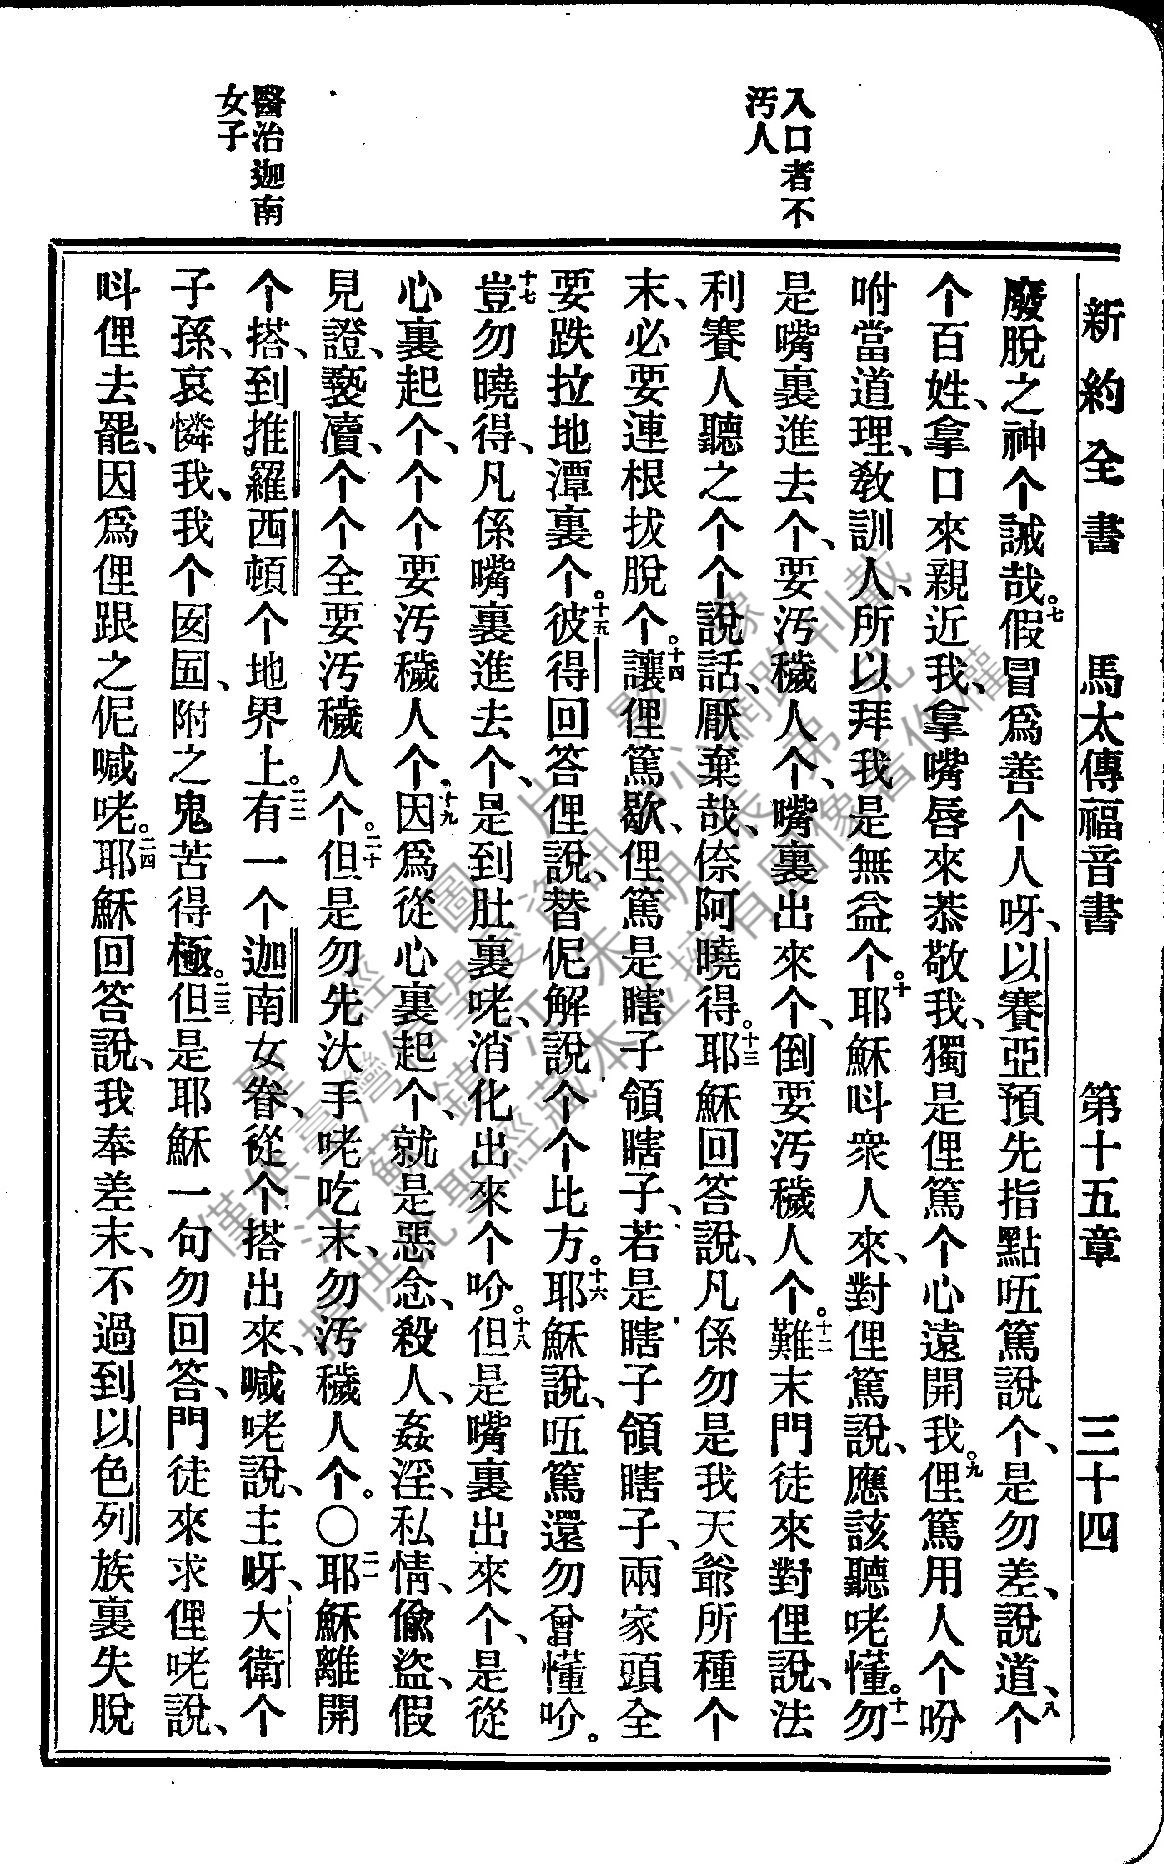 新約全書 馬太傳福音書 第十五章 三十四
入口者不
汚人
醫治迦南
女子
廢脫之神个誡哉。七假冒爲善个人呀、以賽亞預先指點㕶篤說个、是勿差、說道、八个
个百姓、拿口來親近我、拿嘴唇來恭敬我、獨是俚篤个心遠開我。九俚篤用人个吩
咐當道理、敎訓人、所以拜我是無益个。十耶穌呌衆人來、對俚篤說、應該聽咾懂。十一勿
是嘴裏進去个、要汚穢人个、嘴裏出來个、倒要汚穢人个。十二難末門徒來對俚說、法
利賽人聽之个个說話、厭棄哉、倷阿曉得。十三耶穌回答說、凡係勿是我天爺所種个
末、必要連根拔脫个。十四讓俚篤歇、俚篤是瞎子領瞎子、若是瞎子領瞎子、兩家頭全
要跌拉地潭裏个。十五彼得回答俚說、替伲解說个个比方。十六耶穌說、㕶篤還勿曾懂吤。
十七豈勿曉得、凡係嘴裏進去个、是到肚裏咾、消化出來个吤。十八但是嘴裏出來个、是從
心裏起个、个个要汚穢人个。十九因爲從心裏起个、就是惡念、殺人、姦淫、私情、偸盜、假
見證、褻瀆、个个全要汚穢人个。二十但是勿先汏手咾吃末、勿汚穢人个。〇二一耶穌離開
个搭、到推羅西頓个地界上。二二有一个迦南女眷、從个搭出來、喊咾說、主呀、大衛个
子孫、哀憐我、我个囡囝、附之鬼苦得極。二三但是耶穌一句勿回答、門徒來求俚咾說、
呌俚去罷、因爲俚跟之伲喊咾。二四耶穌回答說、我奉差末、不過到以色列族裏失脫